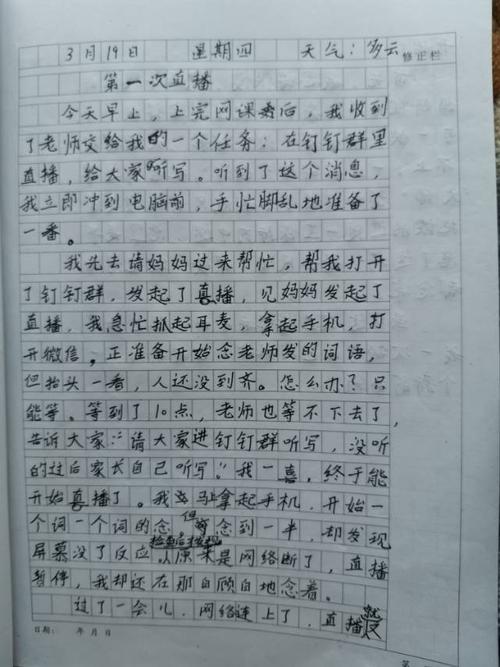 3月19日 星期四 天气：多云 修正栏
第一次直播
今天早上，上完网课后，我收到
了老师交给我的一个任务：在钉钉群里
直播，给大家听写。听到了这个消息，
我立即冲到电脑前，手忙脚乱地准备了
一番。
我先去请妈妈过来帮忙，帮我打开
了钉钉群，发起了直播，见妈妈发起了
直播，我急忙抓起耳麦，拿起手机，打
开微信。正准备开始念老师发的词语，
但抬头一看，人还没到齐。怎么办？只
能等。等到了10点，老师也等不下去了，
告诉大家：“请大家进钉钉群听写，没听
的过后家长自己听写”！我一喜，终于能
开始直播了。我拿起手机，开始一
个词一个词的念，但念到一半，却发现
屏幕没了反应。检查后发现原来是网络断了，直播
暂停，我却还在那自顾自地念着。
过了一会儿，网络连上了，直播就
日期： 年 月 日